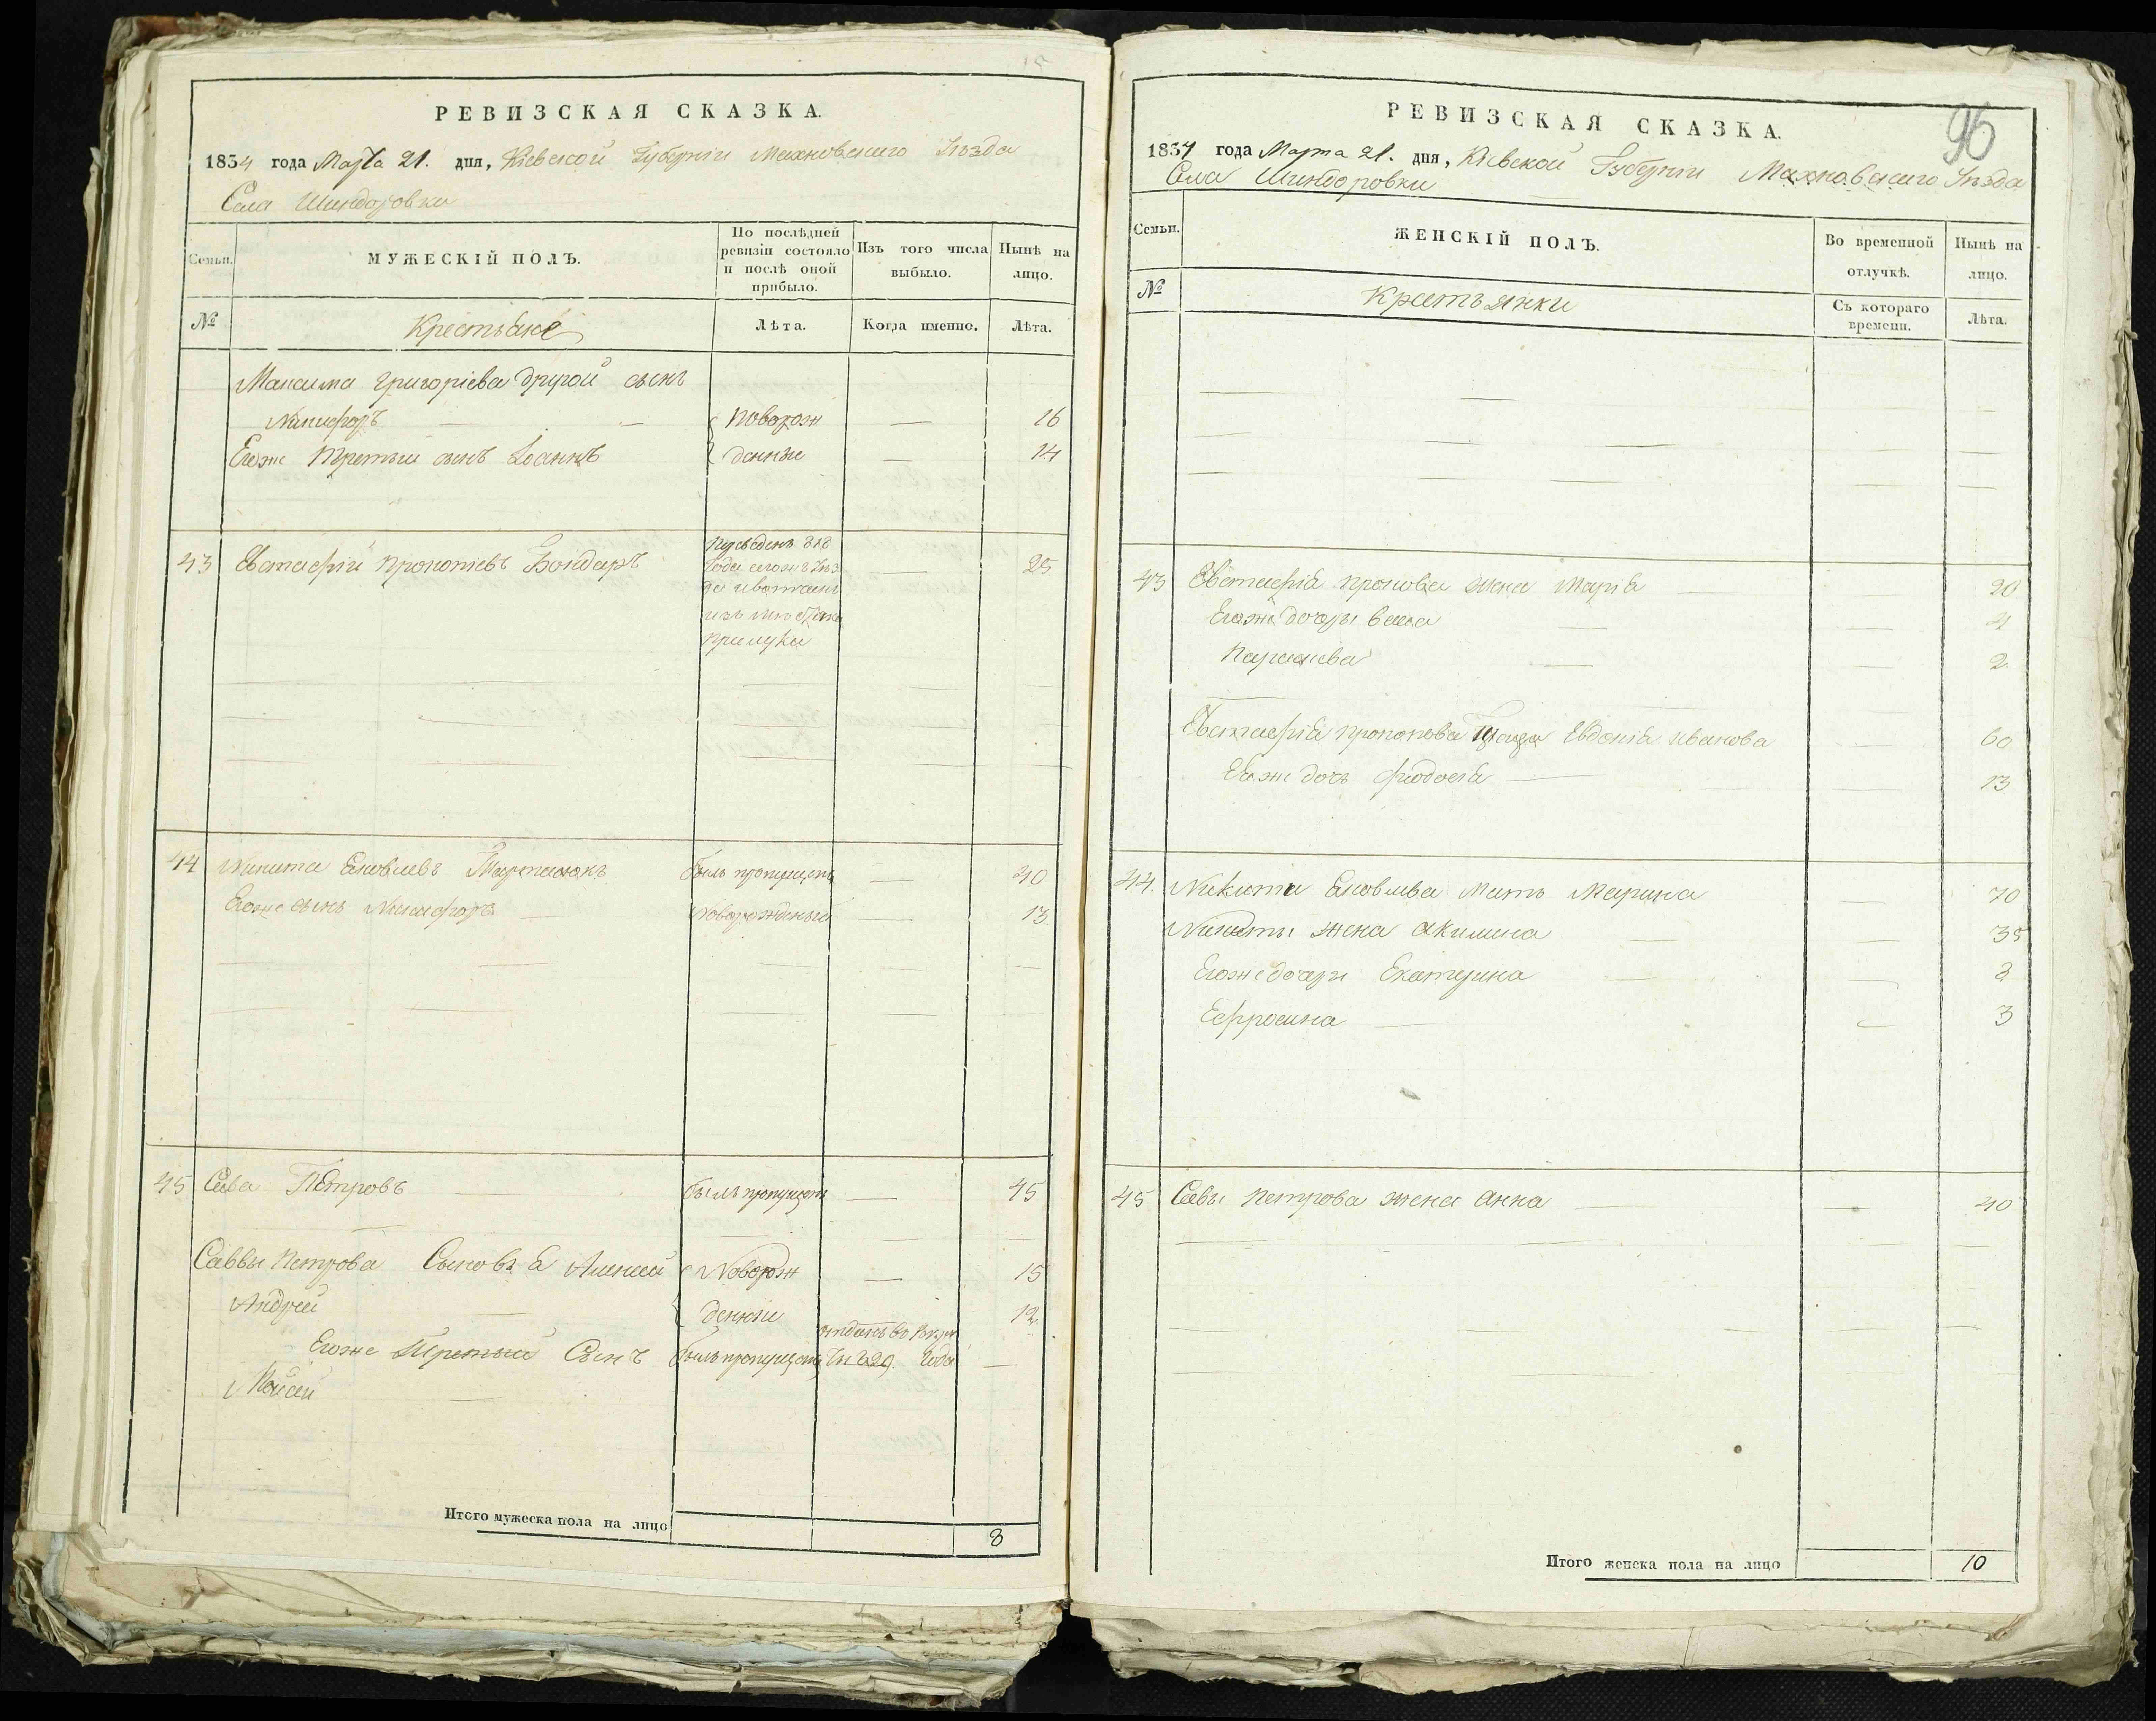 РЕВИЗСКАЯ СКАЗКА.
1834 года Марта 21. дня, Кіевской Губерніи Махновскаго Уѣзда
Села Шиндоровки
Семьи.
МУЖЕСКІЙ ПОЛЪ.
По послѣдней ревизіи состояло и послѣ оной прибыло.
Изъ того числа выбыло.
Нынѣ на лицо.
№
Крестьяне
Лѣта.
Когда именно.
Лѣта.
Максима Григоріева другой сынъ
Никифоръ — — Новорож — 16
Егоже третий сынъ Іоаннъ денные — 14
43 Евстафій Прокопіевъ Бондарь — 25
года
изъ
Прилука
44 Никита Яковлевъ былъ пропущенъ — 40
Егоже сынъ Никифоръ — Новорожденые — 13
45 Сава Петровъ — былъ пропущенъ — 45
Саввы Петрова Сыновья Алексей Новорож — 15
Андрей — денные 12
отданъ въ
Егоже Третый Сынъ былъ пропущенъ 829. года —
Мойсей —
Итого мужеска пола на лицо 8
96
РЕВИЗСКАЯ СКАЗКА.
1834 года Марта 21. дня, Кіевской Губерніи Махновскаго Уѣзда
Села Шиндоровки
Семьи.
ЖЕНСКІЙ ПОЛЪ.
Во временной отлучкѣ.
Нынѣ на лицо.
№
Крестьянки
Съ котораго времени.
Лѣта.
43 Евстафія Прокопова жена Марія — — 20
Егоже дочеры — — 4
Параскева — — 2
Евстафія Прокопова Евдокія Иванова — 60
Еяже дочь Феодосія — — 13
44. Никиты Яковлева мать Марина — 70
Никиты жена Акилина — — 35
Егоже дочери Екатерина — —
Ефросина — — 3
45 Савы Петрова жена Анна — — 40
Итого женска пола на лицо 10